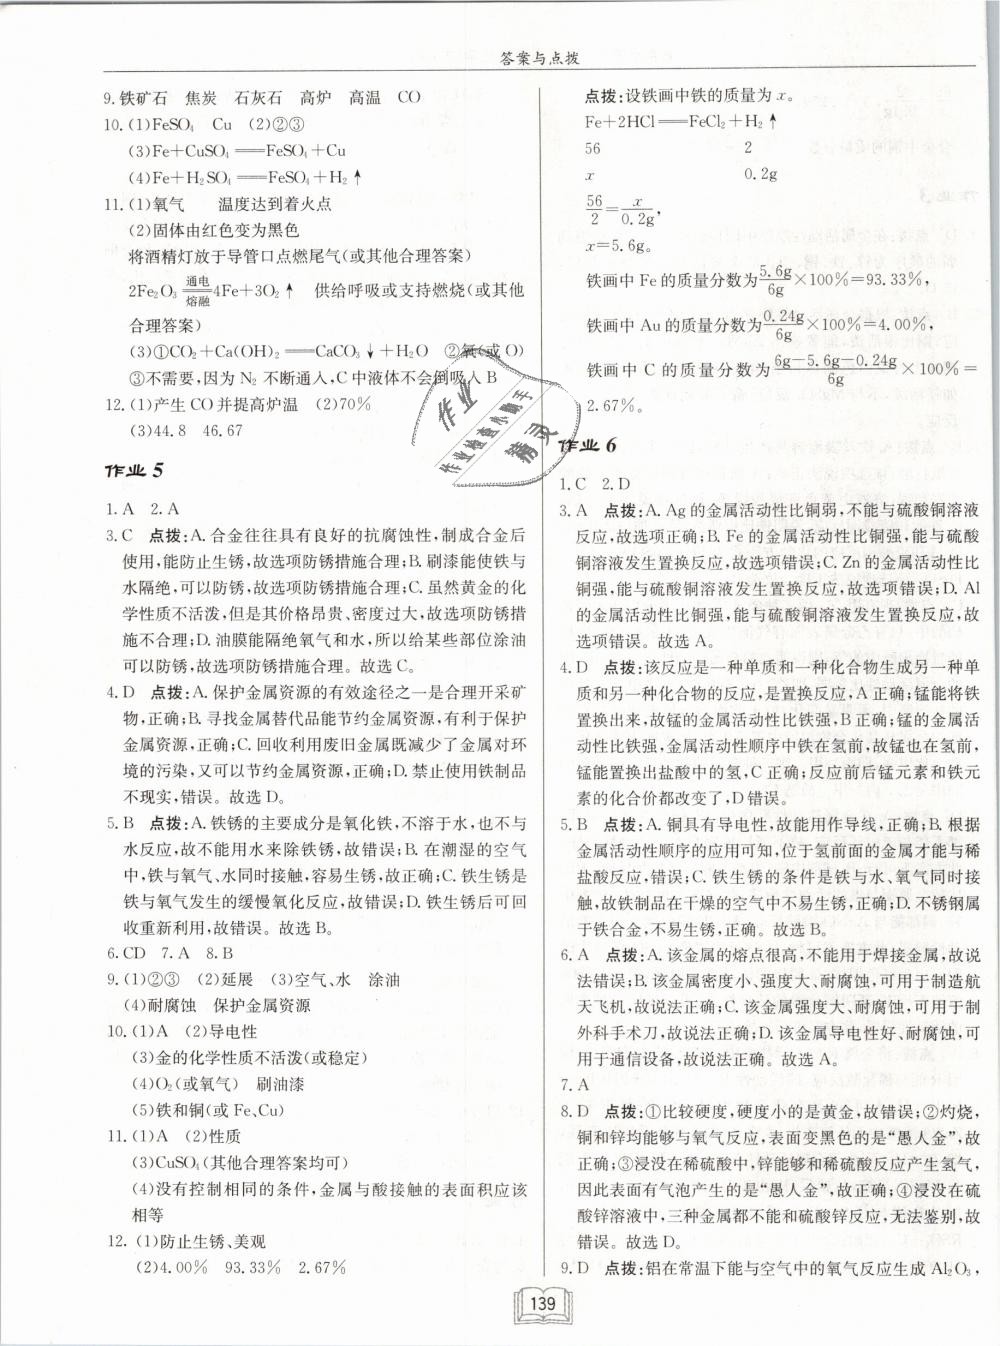 答案与点拨
9.铁矿石　焦炭　石灰石　高炉　高温　CO
10.(1)FeSO₄　Cu　(2)②③
(3)Fe+CuSO₄══FeSO₄+Cu
(4)Fe+H₂SO₄══FeSO₄+H₂↑
11.(1)氧气　　温度达到着火点
(2)固体由红色变为黑色
将酒精灯放于导管口点燃尾气(或其他合理答案)
2Fe₂O₃ 通电/熔融 4Fe+3O₂↑　供给呼吸或支持燃烧(或其他
合理答案)
(3)①CO₂+Ca(OH)₂══CaCO₃↓+H₂O　②氧(或O)
③不需要,因为N₂不断通入,C中液体不会倒吸入B
12.(1)产生CO并提高炉温　(2)70%
(3)44.8　46.67
作业5
1.A　2.A
3.C　点拨:A.合金往往具有良好的抗腐蚀性,制成合金后
使用,能防止生锈,故选项防锈措施合理;B.刷漆能使铁与
水隔绝,可以防锈,故选项防锈措施合理;C.虽然黄金的化
学性质不活泼,但是其价格昂贵、密度过大,故选项防锈措
施不合理;D.油膜能隔绝氧气和水,所以给某些部位涂油
可以防锈,故选项防锈措施合理。故选C。
4.D　点拨:A.保护金属资源的有效途径之一是合理开采矿
物,正确;B.寻找金属替代品能节约金属资源,有利于保护
金属资源,正确;C.回收利用废旧金属既减少了金属对环
境的污染,又可以节约金属资源,正确;D.禁止使用铁制品
不现实,错误。故选D。
5.B　点拨:A.铁锈的主要成分是氧化铁,不溶于水,也不与
水反应,故不能用水来除铁锈,故错误;B.在潮湿的空气
中,铁与氧气、水同时接触,容易生锈,故正确;C.铁生锈是
铁与氧气发生的缓慢氧化反应,故错误;D.铁生锈后可回
收重新利用,故错误。故选B。
6.CD　7.A　8.B
9.(1)①②③　(2)延展　(3)空气、水　涂油
(4)耐腐蚀　保护金属资源
10.(1)A　(2)导电性
(3)金的化学性质不活泼(或稳定)
(4)O₂(或氧气)　刷油漆
(5)铁和铜(或Fe、Cu)
11.(1)A　(2)性质
(3)CuSO₄(其他合理答案均可)
(4)没有控制相同的条件,金属与酸接触的表面积应该
相等
12.(1)防止生锈、美观
(2)4.00%　93.33%　2.67%
点拨:设铁画中铁的质量为x。
Fe+2HCl══FeCl₂+H₂↑
56　　　　　　　　　2
x　　　　　　　　　0.2g
56/2=x/0.2g,
x=5.6g。
铁画中Fe的质量分数为5.6g/6g×100%=93.33%,
铁画中Au的质量分数为0.24g/6g×100%=4.00%,
铁画中C的质量分数为(6g-5.6g-0.24g)/6g×100%=
2.67%。
作业6
1.C　2.D
3.A　点拨:A.Ag的金属活动性比铜弱,不能与硫酸铜溶液
反应,故选项正确;B.Fe的金属活动性比铜强,能与硫酸
铜溶液发生置换反应,故选项错误;C.Zn的金属活动性比
铜强,能与硫酸铜溶液发生置换反应,故选项错误;D.Al
的金属活动性比铜强,能与硫酸铜溶液发生置换反应,故
选项错误。故选A。
4.D　点拨:该反应是一种单质和一种化合物生成另一种单
质和另一种化合物的反应,是置换反应,A正确;锰能将铁
置换出来,故锰的金属活动性比铁强,B正确;锰的金属活
动性比铁强,金属活动性顺序中铁在氢前,故锰也在氢前,
锰能置换出盐酸中的氢,C正确;反应前后锰元素和铁元
素的化合价都改变了,D错误。
5.B　点拨:A.铜具有导电性,故能用作导线,正确;B.根据
金属活动性顺序的应用可知,位于氢前面的金属才能与稀
盐酸反应,错误;C.铁生锈的条件是铁与水、氧气同时接
触,故铁制品在干燥的空气中不易生锈,正确;D.不锈钢属
于铁合金,不易生锈,正确。故选B。
6.A　点拨:A.该金属的熔点很高,不能用于焊接金属,故说
法错误;B.该金属密度小、强度大、耐腐蚀,可用于制造航
天飞机,故说法正确;C.该金属强度大、耐腐蚀,可用于制
外科手术刀,故说法正确;D.该金属导电性好、耐腐蚀,可
用于通信设备,故说法正确。故选A。
7.A
8.D　点拨:①比较硬度,硬度小的是黄金,故错误;②灼烧,
铜和锌均能够与氧气反应,表面变黑色的是“愚人金”,故
正确;③浸没在稀硫酸中,锌能够和稀硫酸反应产生氢气,
因此表面有气泡产生的是“愚人金”,故正确;④浸没在硫
酸锌溶液中,三种金属都不能和硫酸锌反应,无法鉴别,故
错误。故选D。
9.D　点拨:铝在常温下能与空气中的氧气反应生成Al₂O₃,
作业
作业检查小助手
精灵
139